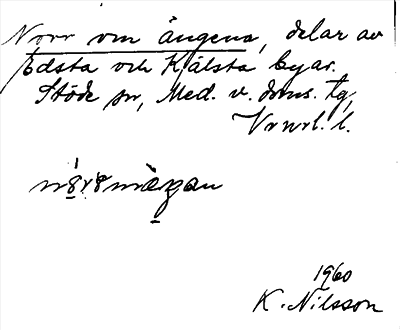 Norr om ängena, delar av
Edsta och Kjälsta byar.
Stöde sn, Med. v. doms. tg,
Vrnrl. l.
1960
K. Nilsson